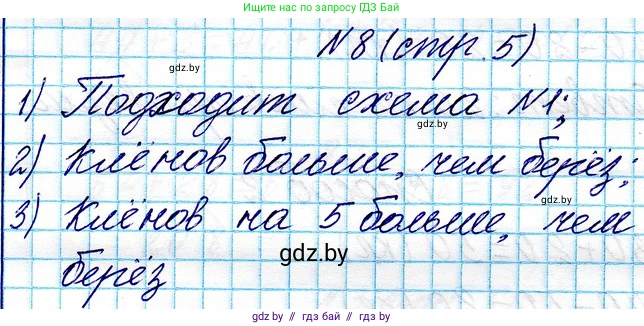 Ищите нас в интернете по запросу
ГДЗ Бай
N8 (стр. 5)
gdz.by
1) Подходит схема N1;
gdz.by
2) Клёнов больше, чем берёз;
gdz.by
3) Клёнов на 5 больше, чем
gdz.by
берёз
gdz.by // гдз бай // gdz.by